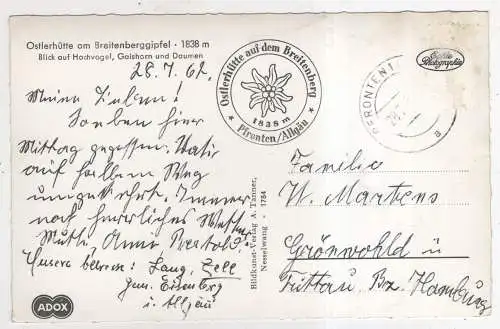 Ostlerhütte am Breitenberggipfel · 1838 m
Blick auf Hochvogel, Gaishorn und Daumen
28.7.62.
Meine Lieben!
Soeben hier
Mittag gegessen. Vati
auf halbem Weg
umgekehrt. Immer
noch herrliches Wetter
Mutti, Anne
Unsere Adresse: Lang, Zell
Gem. Eisenberg
i. Allgäu
ADOX
Ostlerhütte auf dem Breitenberg
1838 m
Pfronten/Allgäu
PFRONTEN 1
a
Echte
Photographie
Bildkunst-Verlag A. Tanner,
Nesselwang · 1784
Familie
W. Martens
Grönwohld ü
Trittau, Bz. Hamburg